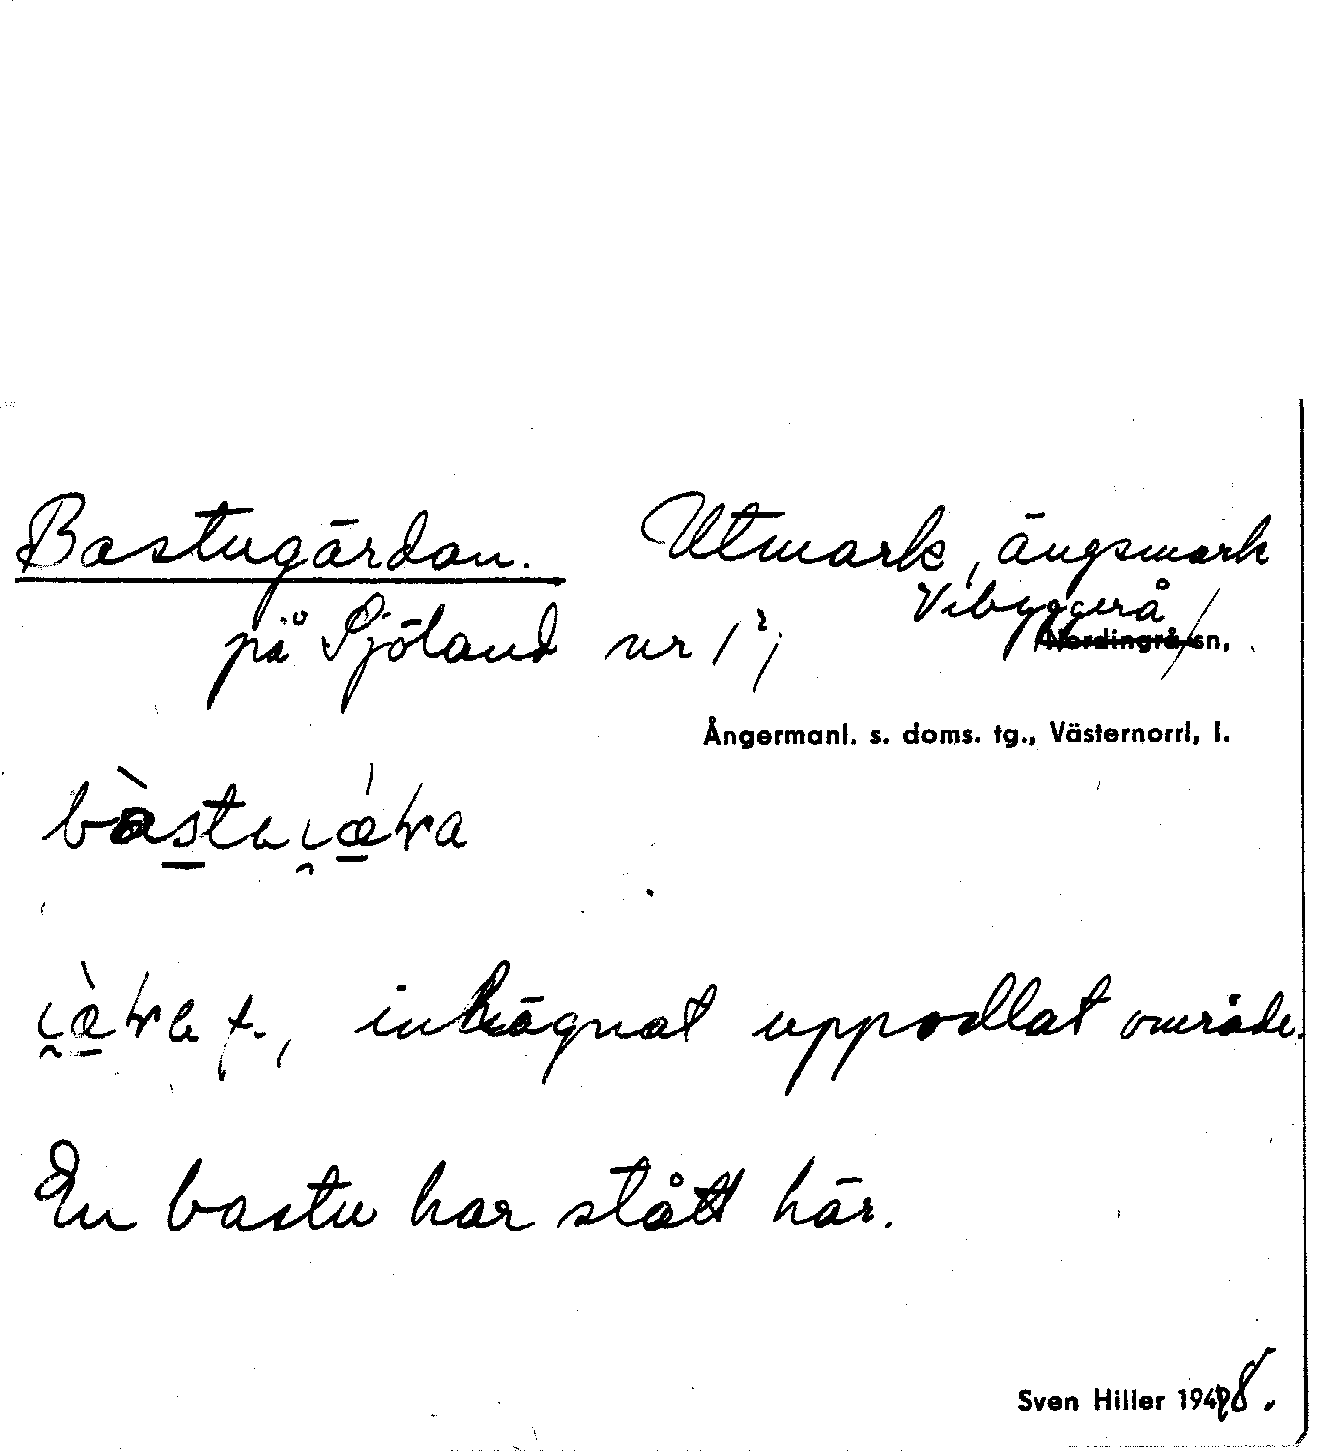 Bastugärdan. Utmark, ängsmark
på Sjöland nr 1²; Vibyggerå Nordingrå sn,
Ångermanl. s. doms. tg., Västernorrl, l.
inhägnat uppodlat område.
En bastu har stått här.
Sven Hiller 1948.